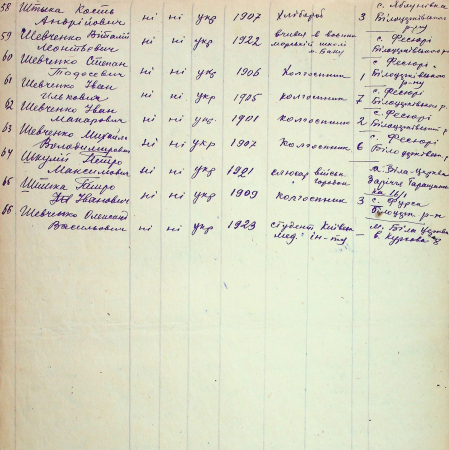 58 Штика Кость Андрійович ні ні укр 1907 Хлібороб 3 с. Яблунівка Білоцерківського р-ну
59 Шевченко Віталій Леонтьович ні ні укр 1922 вчився в воєнно морській школі м. Баку с. Фесюрі Білоцерківського р-ну
60 Шевченко Степан Тодосевич ні ні укр 1906 Колгоспник 1 с. Фесюрі Білоцерківського р-ну
61 Шевченко ІванІлькович ні ні укр 1905 колгоспник 7 с. Фесюрі Білоцерківського р.
62 Шевченко Іван Макарович ні ні укр. 1901 Колгоспник 2 с. Фесюрі Білоцерківський р.
63 Шевченко Михайло Володимирович ні ні укр 1907 Колгоспник 6 с. Фесюрі Білоцерківськ р.
64 Шкулій Петро Максимович ні ні укр 1921 слюсар військ. городок м. Біла-Церква Заріччя Таращанська 16/
65 Шишка Петро Іванович ні ні укр 1909 колгоспник 3 с. Фурси Білоцерк. р-н
66 Шевченко Олексій Васильович ні ні укр 1923 студент Київськ мед. ін-ту – м. Біла Церква в. Куркова